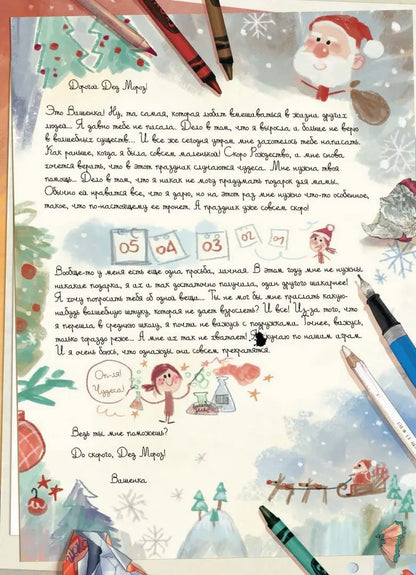 Дорогой Дед Мороз!
Это Вишенка! Ну, та самая, которая любит вмешиваться в жизни других
людей... Я давно тебе не писала. Дело в том, что я выросла и больше не верю
в волшебных существ... И все же сегодня утром мне захотелось тебе написать.
Как раньше, когда я была совсем маленькой! Скоро Рождество, и мне снова
хочется верить, что в этот праздник случаются чудеса. Мне нужна твоя
помощь... Дело в том, что я никак не могу придумать подарок для мамы.
Обычно ей нравится все, что я дарю, но на этот раз мне нужно что-то особенное,
такое, что по-настоящему ее тронет. А праздник уже совсем скоро!
05 04 03 02 01
Вообще-то у меня есть еще одна просьба, личная. В этом году мне не нужны
никакие подарки, я их и так достаточно получила, один другого шикарнее!
Я хочу попросить тебя об одной вещи... Ты не мог бы мне прислать какую-
нибудь волшебную штуку, которая не дает взрослеть? И все! Из-за того, что
я перешла в среднюю школу, я почти не вижусь с подружками. Точнее, вижусь,
только гораздо реже... А мне их так не хватает! Я скучаю по нашим играм.
И я очень боюсь, что однажды они совсем прекратятся.
Оп-ля!
Чудеса!
Ведь ты мне поможешь?
До скорого, Дед Мороз!
Вишенка